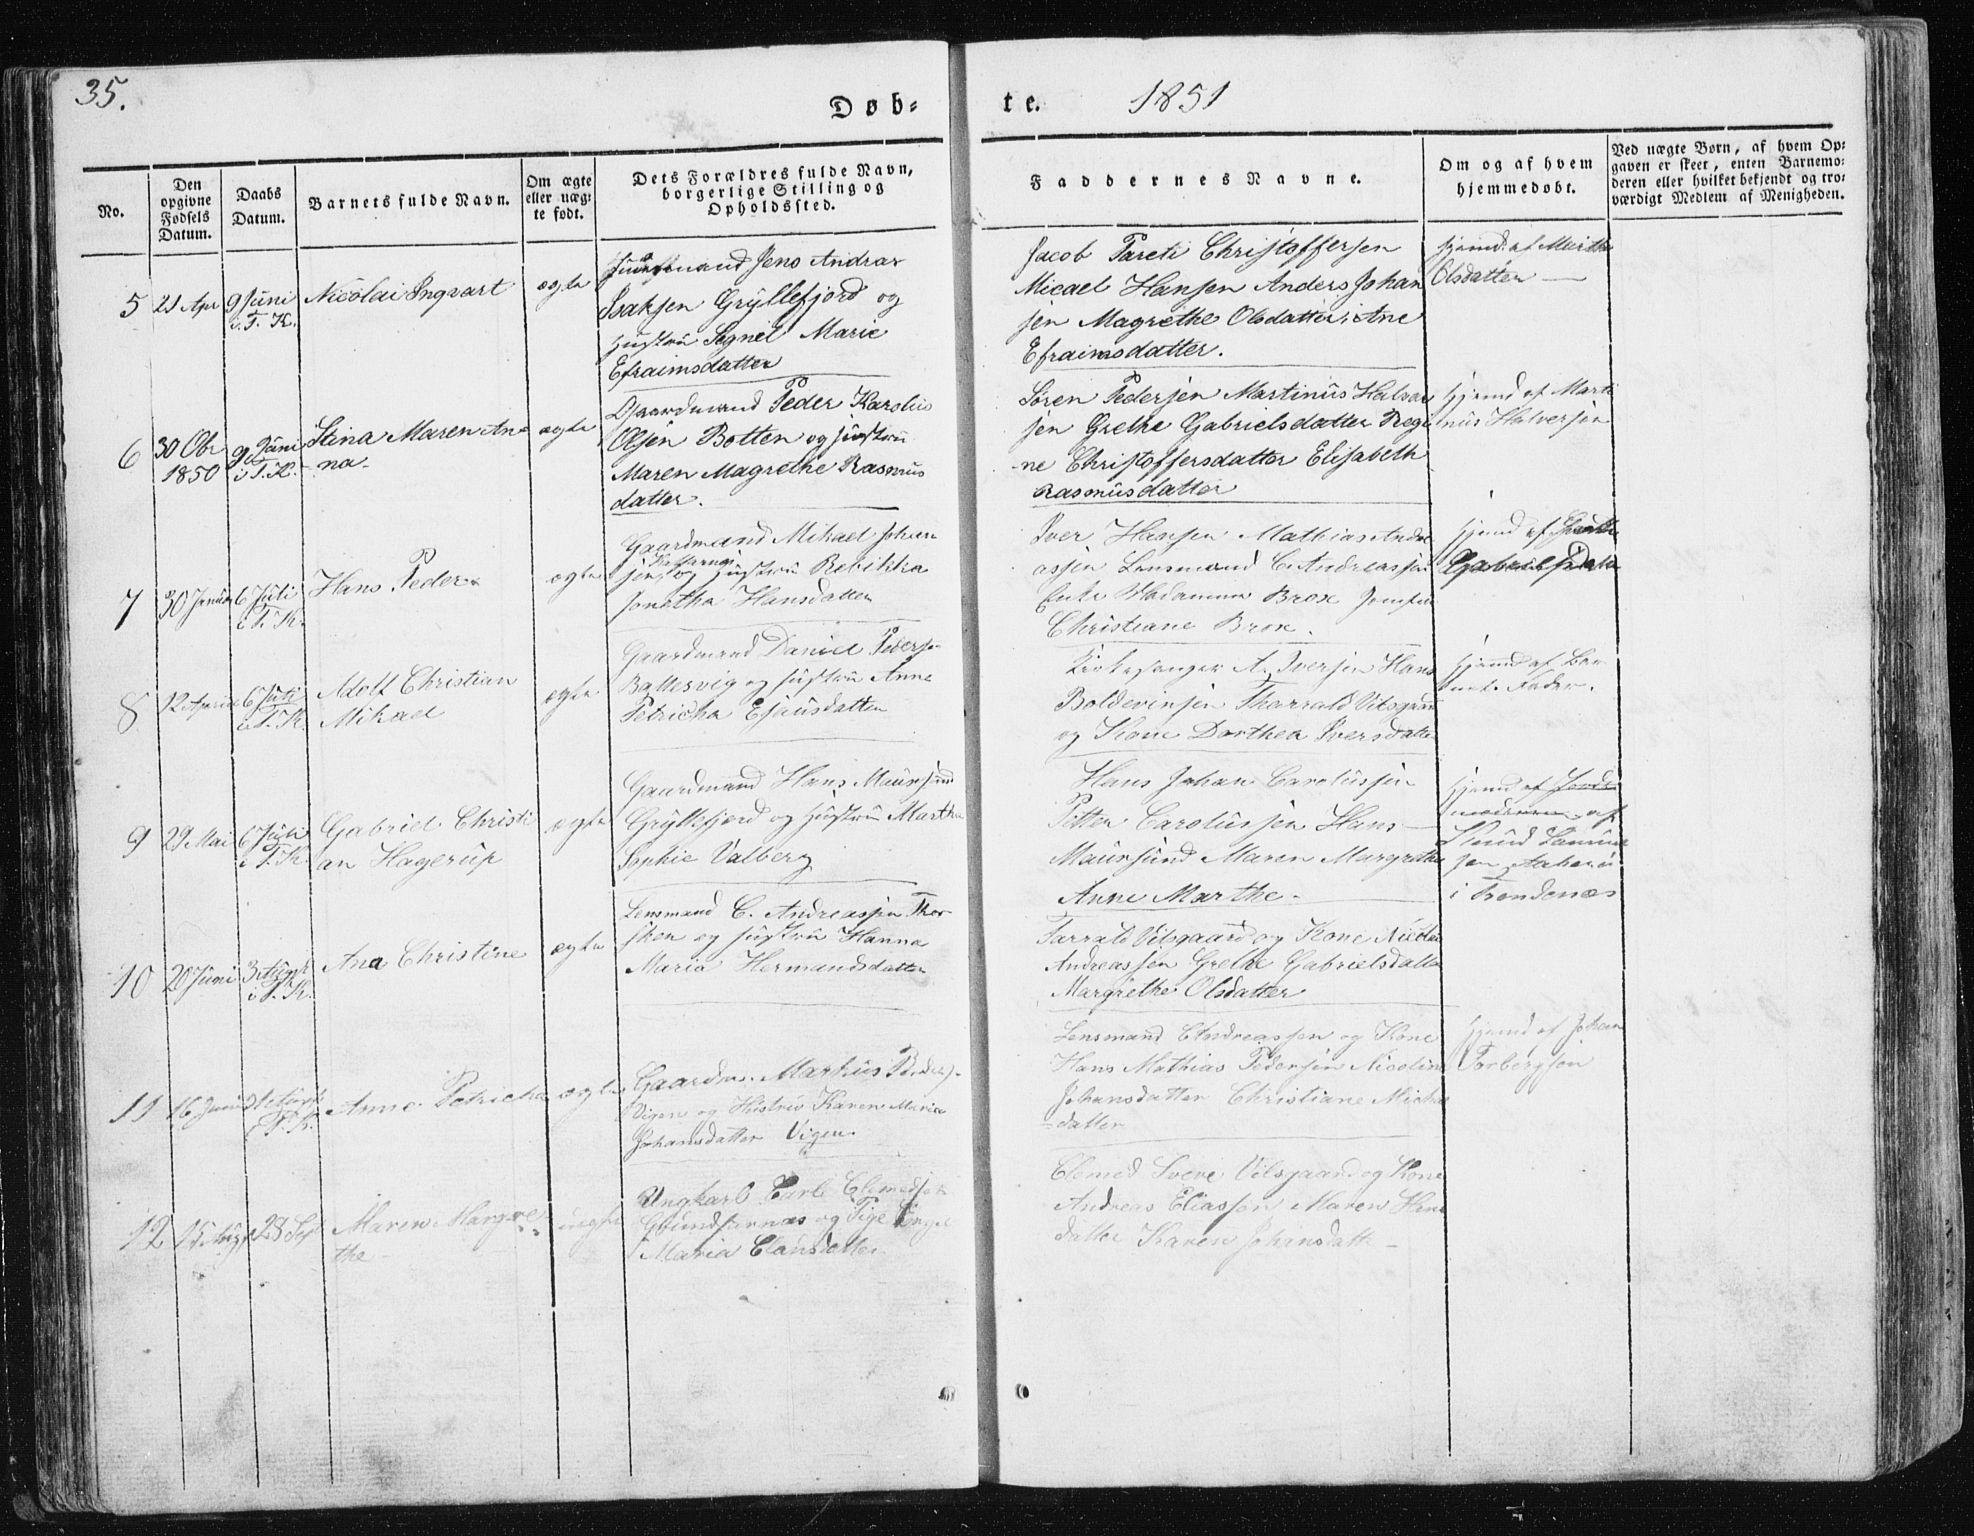 35.
Døb-
te.
1851
No.
Den
opgivne
Fødsels
Datum.
Daabs
Datum.
Barnets fulde Navn.
Om ægte
eller uæg-
te født.
Dets Forældres fulde Navn,
borgerlige Stilling og
Opholdssted.
Faddernes Navne.
Om og af hvem
hjemmedøbt.
Ved uægte Børn, af hvem Op-
gaven er skeet, enten Barnemo-
deren eller hvilket bekjendt og tro-
værdigt Medlem af Menigheden.
5
21 Apr
9 Juni
i T. K.
Nicolai Ingvart
ægte
Jens Andreas
Isaksen Gryllefjord og
Hustru Marie
Efraimsdatter
Jacob Christoffersen
Micael Hansen Anders Johan
sen Magrethe Olsdatter Ane
Efraimsdatter.
hjemd: af Marthe
Olsdatter
6
30 Obr
1850
9 Juni
i T. K.
Stina Maren An-
na-
ægte
Gaardmand Peder Karolius
Olsen Botten og hustru
Maren Magrethe Rasmus
datter.
Søren Pedersen Martinus Halvor
sen Grethe Gabrielsdatter Regi
-ne Christoffersdatter Elisabeth
Rasmusdatter
hjemd af Marti
nus Halversen
7
30 Januar
6 Juli
i T. K.
Hans Peder
ægte
Gaardmand Mikael Johan
sen og hustru Rebikka
Jonetha Hansdatter
Iver Hansen Mathias Andre
assen Lensmand C. Andreassen
Enke Madamme Brox Jomfru
Christiane Brox.
hjemd af
Gabrielsdatter
8
12 April
6 Juli
i T. K.
Adolf Christian
Mikael
ægte
Gaardmand Daniel Peders.
Ballesvig og hustru Anne
Petricha Ejausdatter
Kirkesanger A. Iversen Hans
Boldevinsen Tharrald Vilsgaard
og Kone Dorthea Iversdatter
hjemd af Bar
nets Fader.
9
29 Mai
6 Juli
i T. K.
Gabriel Christi
an Hagerup
ægte
Gaardmand Hans Maursund
Gryllefjord og hustru Martha
Sophie Valberg
Hans Johan Carolussen
Pitter Carolussen Hans
Maursund Maren Margrethe
Anne Marthe.
hjemd af Jorde
moderen af
Knud
sen
i Trondenæs
10
20 Juni
3 Aug
i T. K.
Ana Christine
ægte
Lensmand C. Andreassen Thor
sken og hustru Hanna
Maria Hermandsdatter
Tarrald Vilsgaard og Kone
Andreassen Grethe Gabrielsdatter
Margrethe Olsdatter
11
16 Juni
T. K.
Anne Petricha
ægte
Gaardm. Markus
Vigen og Hustru Karen Maria
Johansdatter Vigen.
Lensmand CAndreassen og Kone
Hans Mathias Pedersen Nicoline
Johansdatter Christiane Michal
-datter
hjemd af Johan
Torbergsen
12
28 Sep
Maren Margre
the-
uægte
Ungkarl Carl
og Pige
Maria Clausdatter.
Vilsgaard og Kone
Andreas Eliassen Maren Hans
datter Karen Johansdatt-